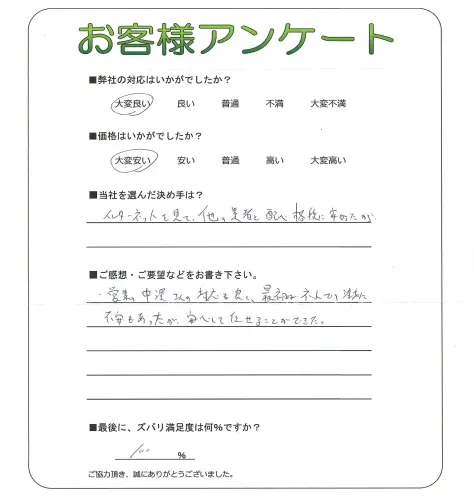 お客様アンケート
■弊社の対応はいかがでしたか？
大変良い 良い 普通 不満 大変不満
■価格はいかがでしたか？
大変安い 安い 普通 高い 大変高い
■当社を選んだ決め手は？
インターネットを見て、他の業者と 格段に安かったから
■ご感想・ご要望などをお書き下さい。
・営業の中澤さんの対応も良く、最初は ネットでの
不安もあったが、安心して任せることができた。
■最後に、ズバリ満足度は何％ですか？
100 ％
ご協力頂き、誠にありがとうございました。